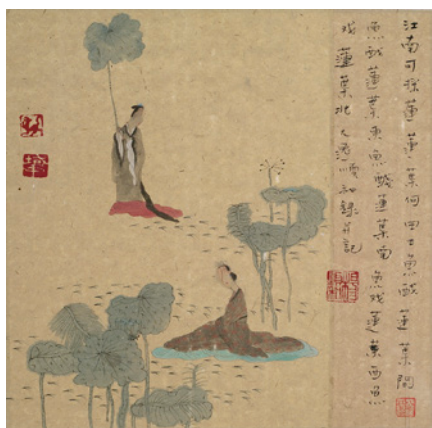 江南可採蓮蓮葉何田田魚戲蓮葉間
魚戲蓮葉東魚戲蓮葉南魚戏蓮葉西魚
戏蓮葉北 錄并記